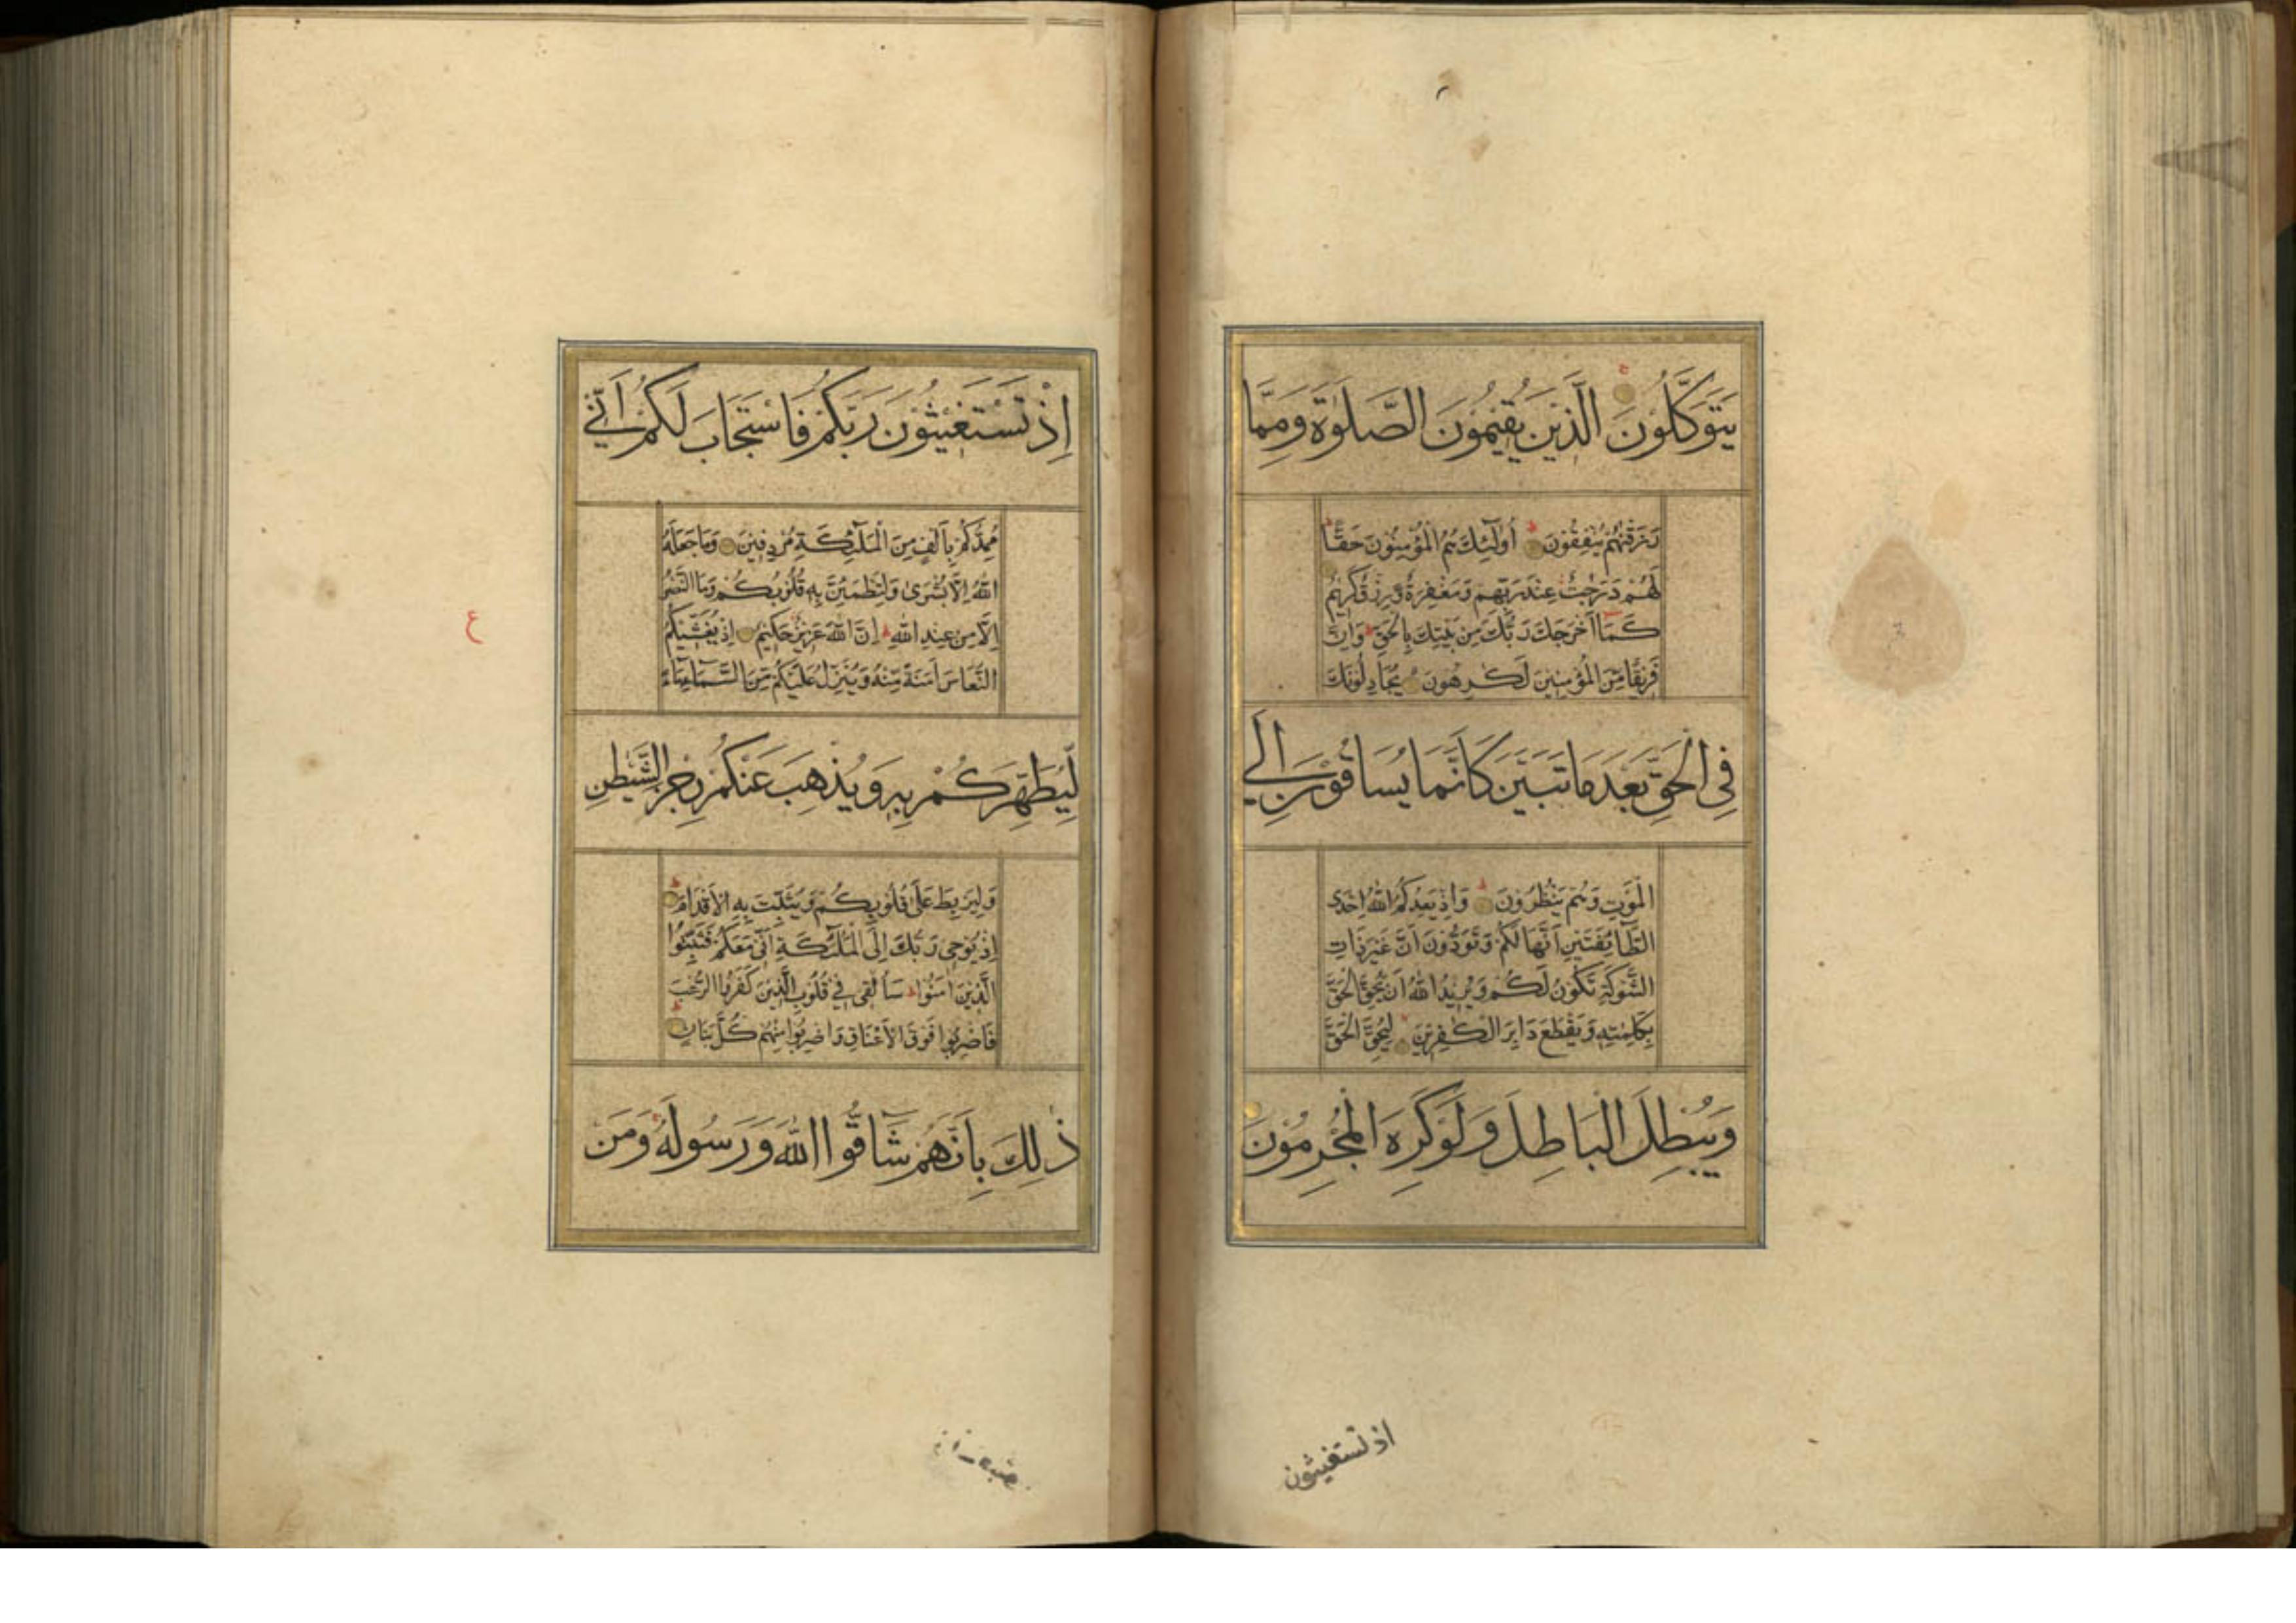 يَتَوَكَّلُونَ الَّذِينَ يُقِيمُونَ الصَّلَوٰةَ وَمِمَّا
رَزَقْنٰهُمْ يُنْفِقُونَ ط أُولٰٓئِكَ هُمُ الْمُؤْمِنُونَ حَقًّا ط
لَهُمْ دَرَجٰتٌ عِنْدَ رَبِّهِمْ وَمَغْفِرَةٌ وَرِزْقٌ كَرِيمٌ
كَمَا أَخْرَجَكَ رَبُّكَ مِنْ بَيْتِكَ بِالْحَقِّ وَإِنَّ
فَرِيقًا مِنَ الْمُؤْمِنِينَ لَكٰرِهُونَ يُجَادِلُونَكَ
فِي الْحَقِّ بَعْدَ مَا تَبَيَّنَ كَأَنَّمَا يُسَاقُونَ إِلَى
الْمَوْتِ وَهُمْ يَنْظُرُونَ ط وَإِذْ يَعِدُكُمُ اللّٰهُ إِحْدَى
الطَّائِفَتَيْنِ أَنَّهَا لَكُمْ وَتَوَدُّونَ أَنَّ غَيْرَ ذَاتِ
الشَّوْكَةِ تَكُونُ لَكُمْ وَيُرِيدُ اللّٰهُ أَنْ يُحِقَّ الْحَقَّ
بِكَلِمٰتِهِ وَيَقْطَعَ دَابِرَ الْكٰفِرِينَ لِيُحِقَّ الْحَقَّ
وَيُبْطِلَ الْبَاطِلَ وَلَوْ كَرِهَ الْمُجْرِمُونَ
اذ تستغيثون
إِذْ تَسْتَغِيثُونَ رَبَّكُمْ فَاسْتَجَابَ لَكُمْ أَنِّي
مُمِدُّكُمْ بِأَلْفٍ مِنَ الْمَلٰٓئِكَةِ مُرْدِفِينَ وَمَا جَعَلَهُ
اللّٰهُ إِلَّا بُشْرَىٰ وَلِتَطْمَئِنَّ بِهِ قُلُوبُكُمْ وَمَا النَّصْرُ
إِلَّا مِنْ عِنْدِ اللّٰهِ ط إِنَّ اللّٰهَ عَزِيزٌ حَكِيمٌ إِذْ يُغَشِّيكُمُ
النُّعَاسَ أَمَنَةً مِنْهُ وَيُنَزِّلُ عَلَيْكُمْ مِنَ السَّمَآءِ مَآءً
لِيُطَهِّرَكُمْ بِهِ وَيُذْهِبَ عَنْكُمْ رِجْزَ الشَّيْطٰنِ
وَلِيَرْبِطَ عَلَىٰ قُلُوبِكُمْ وَيُثَبِّتَ بِهِ الْأَقْدَامَ ط
إِذْ يُوحِي رَبُّكَ إِلَى الْمَلٰٓئِكَةِ أَنِّي مَعَكُمْ فَثَبِّتُوا
الَّذِينَ اٰمَنُوا ط سَأُلْقِي فِي قُلُوبِ الَّذِينَ كَفَرُوا الرُّعْبَ
فَاضْرِبُوا فَوْقَ الْأَعْنَاقِ وَاضْرِبُوا مِنْهُمْ كُلَّ بَنَانٍ ط
ذٰلِكَ بِأَنَّهُمْ شَاقُّوا اللّٰهَ وَرَسُولَهُ وَمَنْ
ع